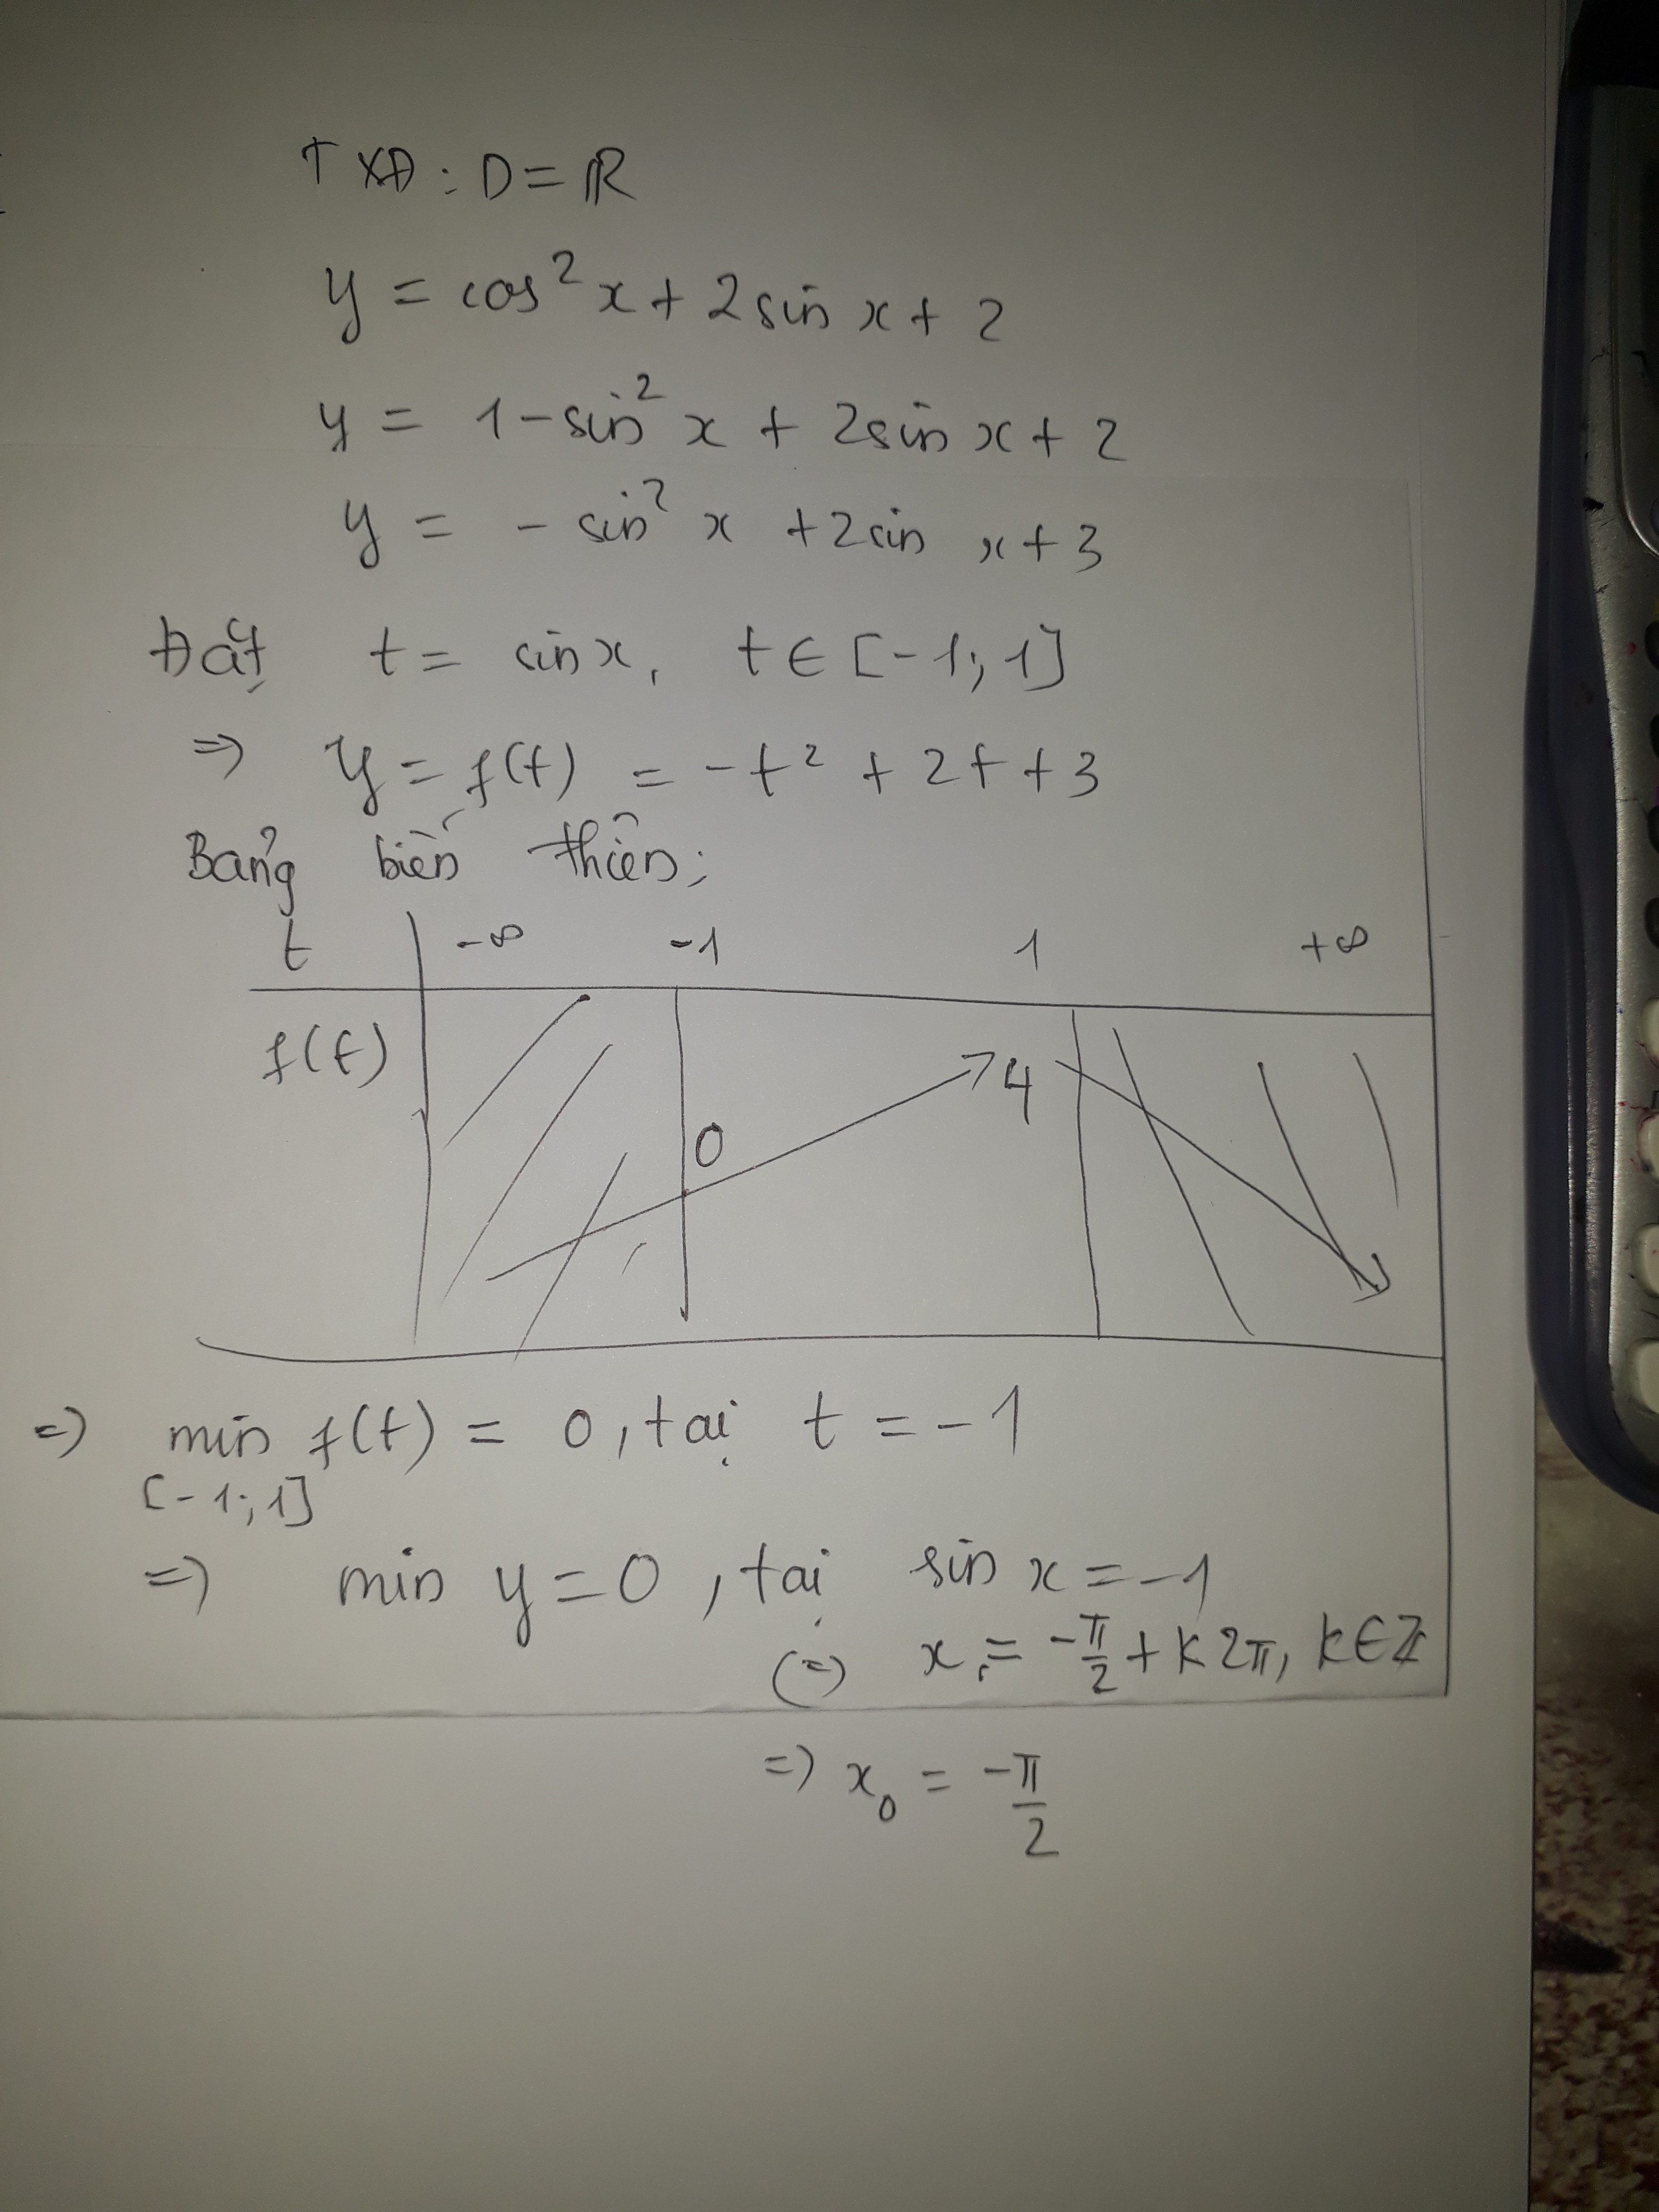 TXĐ: D = ℝ
y = cos²x + 2sin x + 2
y = 1 - sin²x + 2sin x + 2
y = - sin²x + 2sin x + 3
Đặt t = sin x, t ∈ [-1; 1]
=> y = f(t) = -t² + 2t + 3
Bảng biến thiên:
t -∞ -1 1 +∞
f(t) 0 4
=> min f(t) = 0, tại t = -1
[-1; 1]
=> min y = 0, tại sin x = -1
(=) x = -π/2 + k2π, k ∈ ℤ
=> x₀ = -π/2